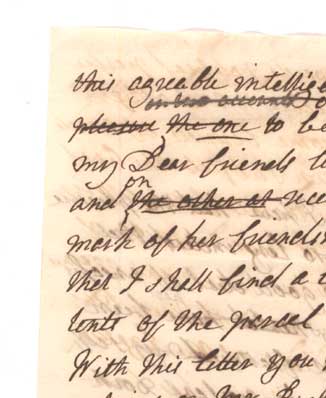 this agreable intellige
on two accounts
pleasure the one to be
my Dear friends
on
and the other at rece
mark of her friends
that I shall find a
tents of the parcel
With this letter you